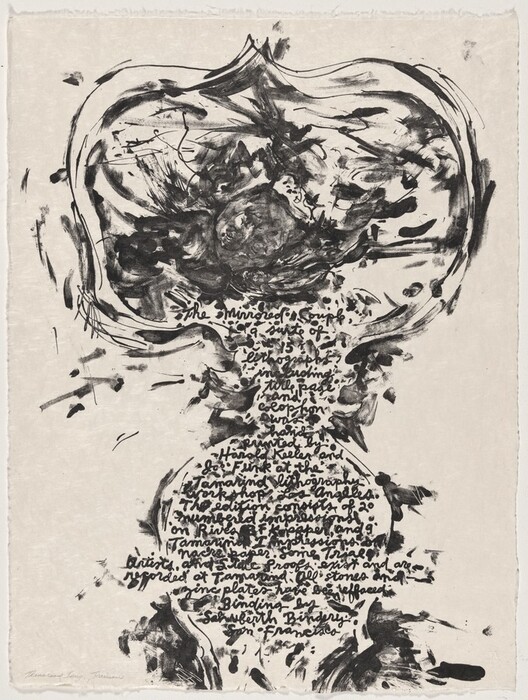 The Mirrored Couple
is a suite of
15
lithographs
including
title page
and
colophon
was
hand
printed by
Harold Keeler and
Joe Funk at the
Tamarind lithography
Workshop, Los Angeles.
The edition consists of 20
numbered impressions
on Rives BFK paper and 9
Tamarind Impressions on
nacre paper. Some Trial,
Artists and State Proofs exist and are
recorded at Tamarind. All stones and
zinc plates have been effaced.
Binding by
Schuberth Bindery
San Francisco